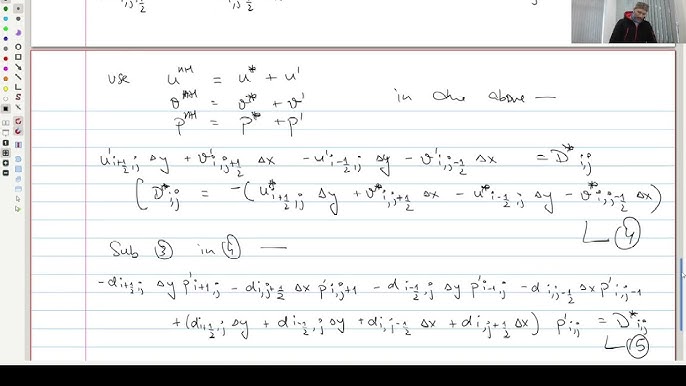 use u^{n+1} = u^* + u'
v^{n+1} = v^* + v' in the above —
p^{n+1} = p^* + p'
u'_{i+1/2,j} Δy + v'_{i,j+1/2} Δx - u'_{i-1/2,j} Δy - v'_{i,j-1/2} Δx = D^*_{i,j}
(D^*_{i,j} = -(u^*_{i+1/2,j} Δy + v^*_{i,j+1/2} Δx - u^*_{i-1/2,j} Δy - v^*_{i,j-1/2} Δx)
④
Sub ③ in ④ —
-d_{i+1/2,j} Δy p'_{i+1,j} - d_{i,j+1/2} Δx p'_{i,j+1} - d_{i-1/2,j} Δy p'_{i-1,j} - d_{i,j-1/2} Δx p'_{i,j-1}
+(d_{i+1/2,j} Δy + d_{i-1/2,j} Δy + d_{i,j-1/2} Δx + d_{i,j+1/2} Δx) p'_{i,j} = D^*_{i,j}
⑤